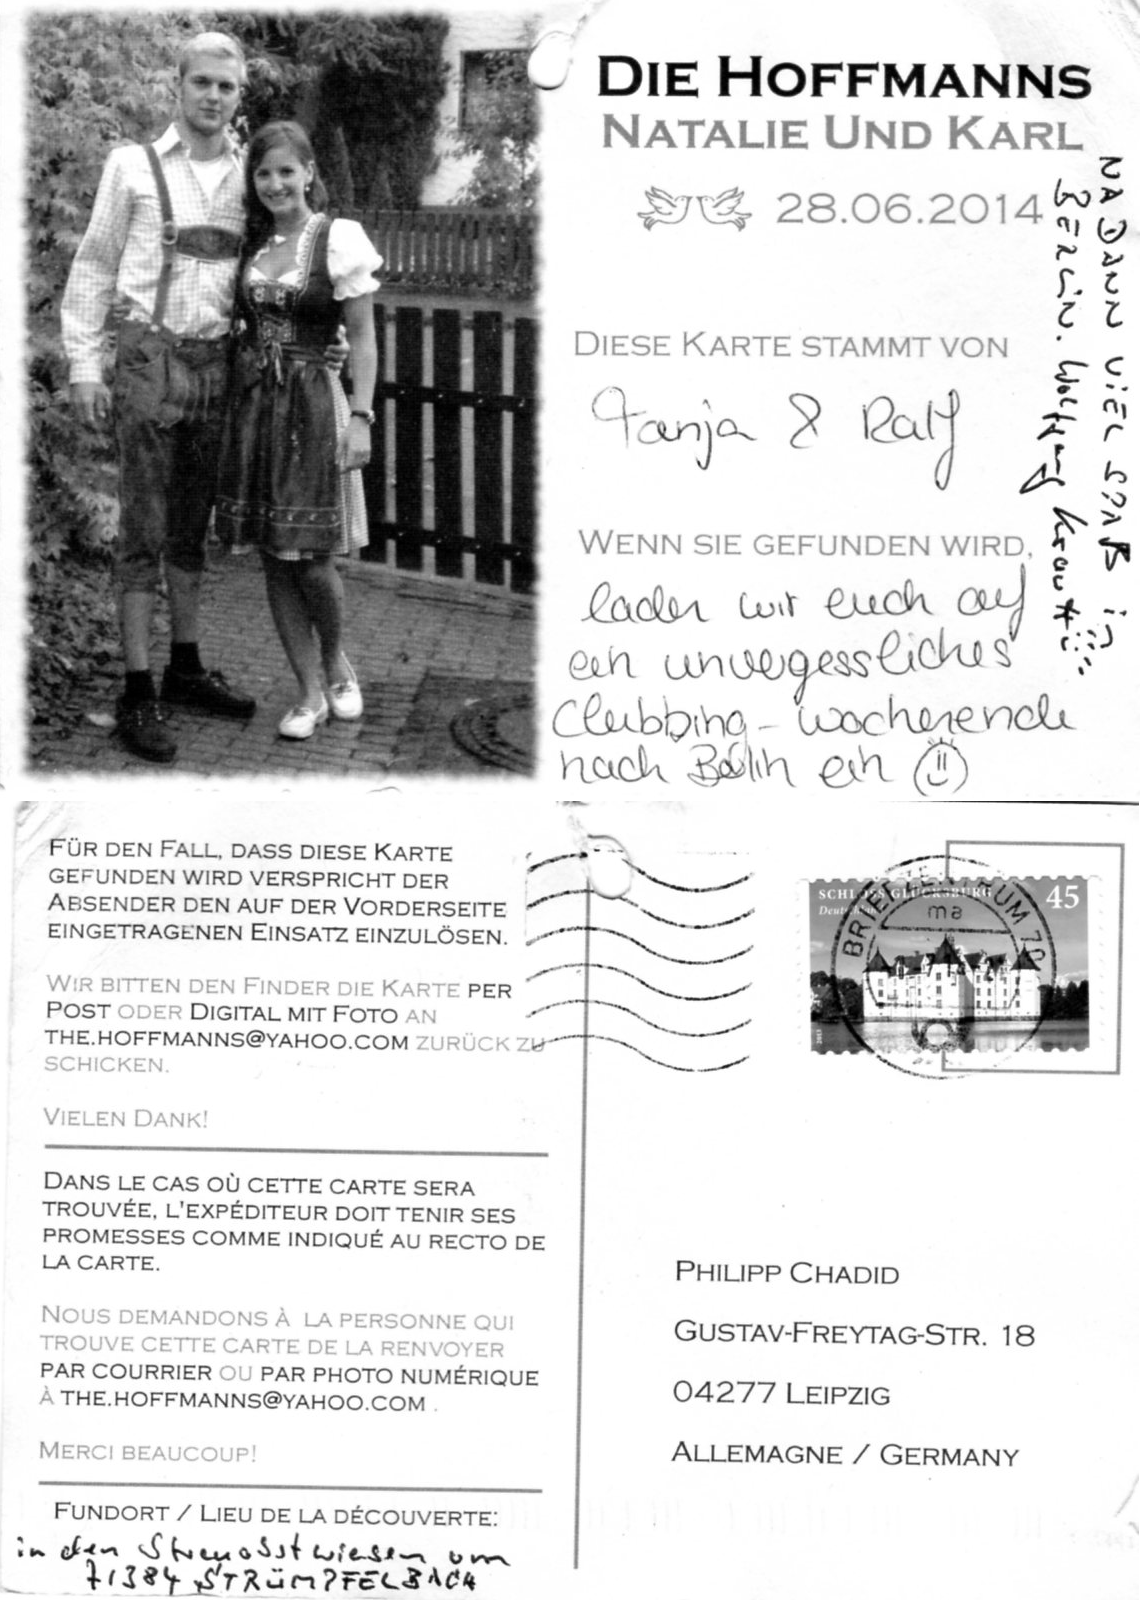 DIE HOFFMANNS
NATALIE UND KARL
28.06.2014
DIESE KARTE STAMMT VON
Tanja & Ralf
WENN SIE GEFUNDEN WIRD,
laden wir euch auf
ein unvergessliches
Clubbing-Wochenende
nach Berlin ein
NA DANN VIEL SPAß in
BERLIN. Wolfgang
FÜR DEN FALL, DASS DIESE KARTE
GEFUNDEN WIRD VERSPRICHT DER
ABSENDER DEN AUF DER VORDERSEITE
EINGETRAGENEN EINSATZ EINZULÖSEN.
WIR BITTEN DEN FINDER DIE KARTE PER
POST ODER DIGITAL MIT FOTO AN
THE.HOFFMANNS@YAHOO.COM ZURÜCK ZU
SCHICKEN.
VIELEN DANK!
DANS LE CAS OÙ CETTE CARTE SERA
TROUVÉE, L'EXPÉDITEUR DOIT TENIR SES
PROMESSES COMME INDIQUÉ AU RECTO DE
LA CARTE.
NOUS DEMANDONS À LA PERSONNE QUI
TROUVE CETTE CARTE DE LA RENVOYER
PAR COURRIER OU PAR PHOTO NUMÉRIQUE
À THE.HOFFMANNS@YAHOO.COM .
MERCI BEAUCOUP!
FUNDORT / LIEU DE LA DÉCOUVERTE:
in den Streuobstwiesen um
71384 STRÜMPFELBACH
SCHLOSS GLÜCKSBURG 45
BRIEFZENTRUM 70
ma
PHILIPP CHADID
GUSTAV-FREYTAG-STR. 18
04277 LEIPZIG
ALLEMAGNE / GERMANY